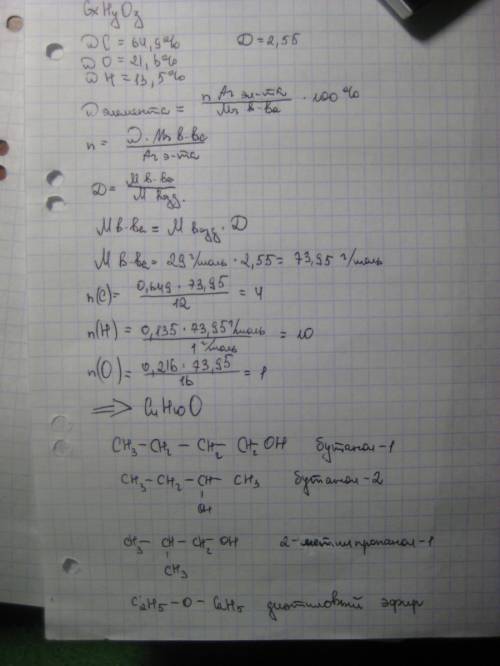 CxHyOz
ωC = 64,9% D = 2,55
ωO = 21,6%
ωH = 13,5%
ω элемента = n Ar эл-та / Mr в-ва · 100%
n = ω · Mr в-ва / Ar э-та
D = M в-ва / M возд.
M в-ва = M возд. · D
M в-ва = 29 г/моль · 2,55 = 73,95 г/моль
n(C) = 0,649 · 73,95 / 12 = 4
n(H) = 0,135 · 73,95 г/моль / 1 г/моль = 10
n(O) = 0,216 · 73,95 / 16 = 1
⇒ C4H10O
CH3 – CH2 – CH2 – CH2OH бутанол-1
CH3 – CH2 – CH – CH3 бутанол-2
OH
CH3 – CH – CH2 OH 2-метилпропанол-1
CH3
C2H5 – O – C2H5 диэтиловый эфир